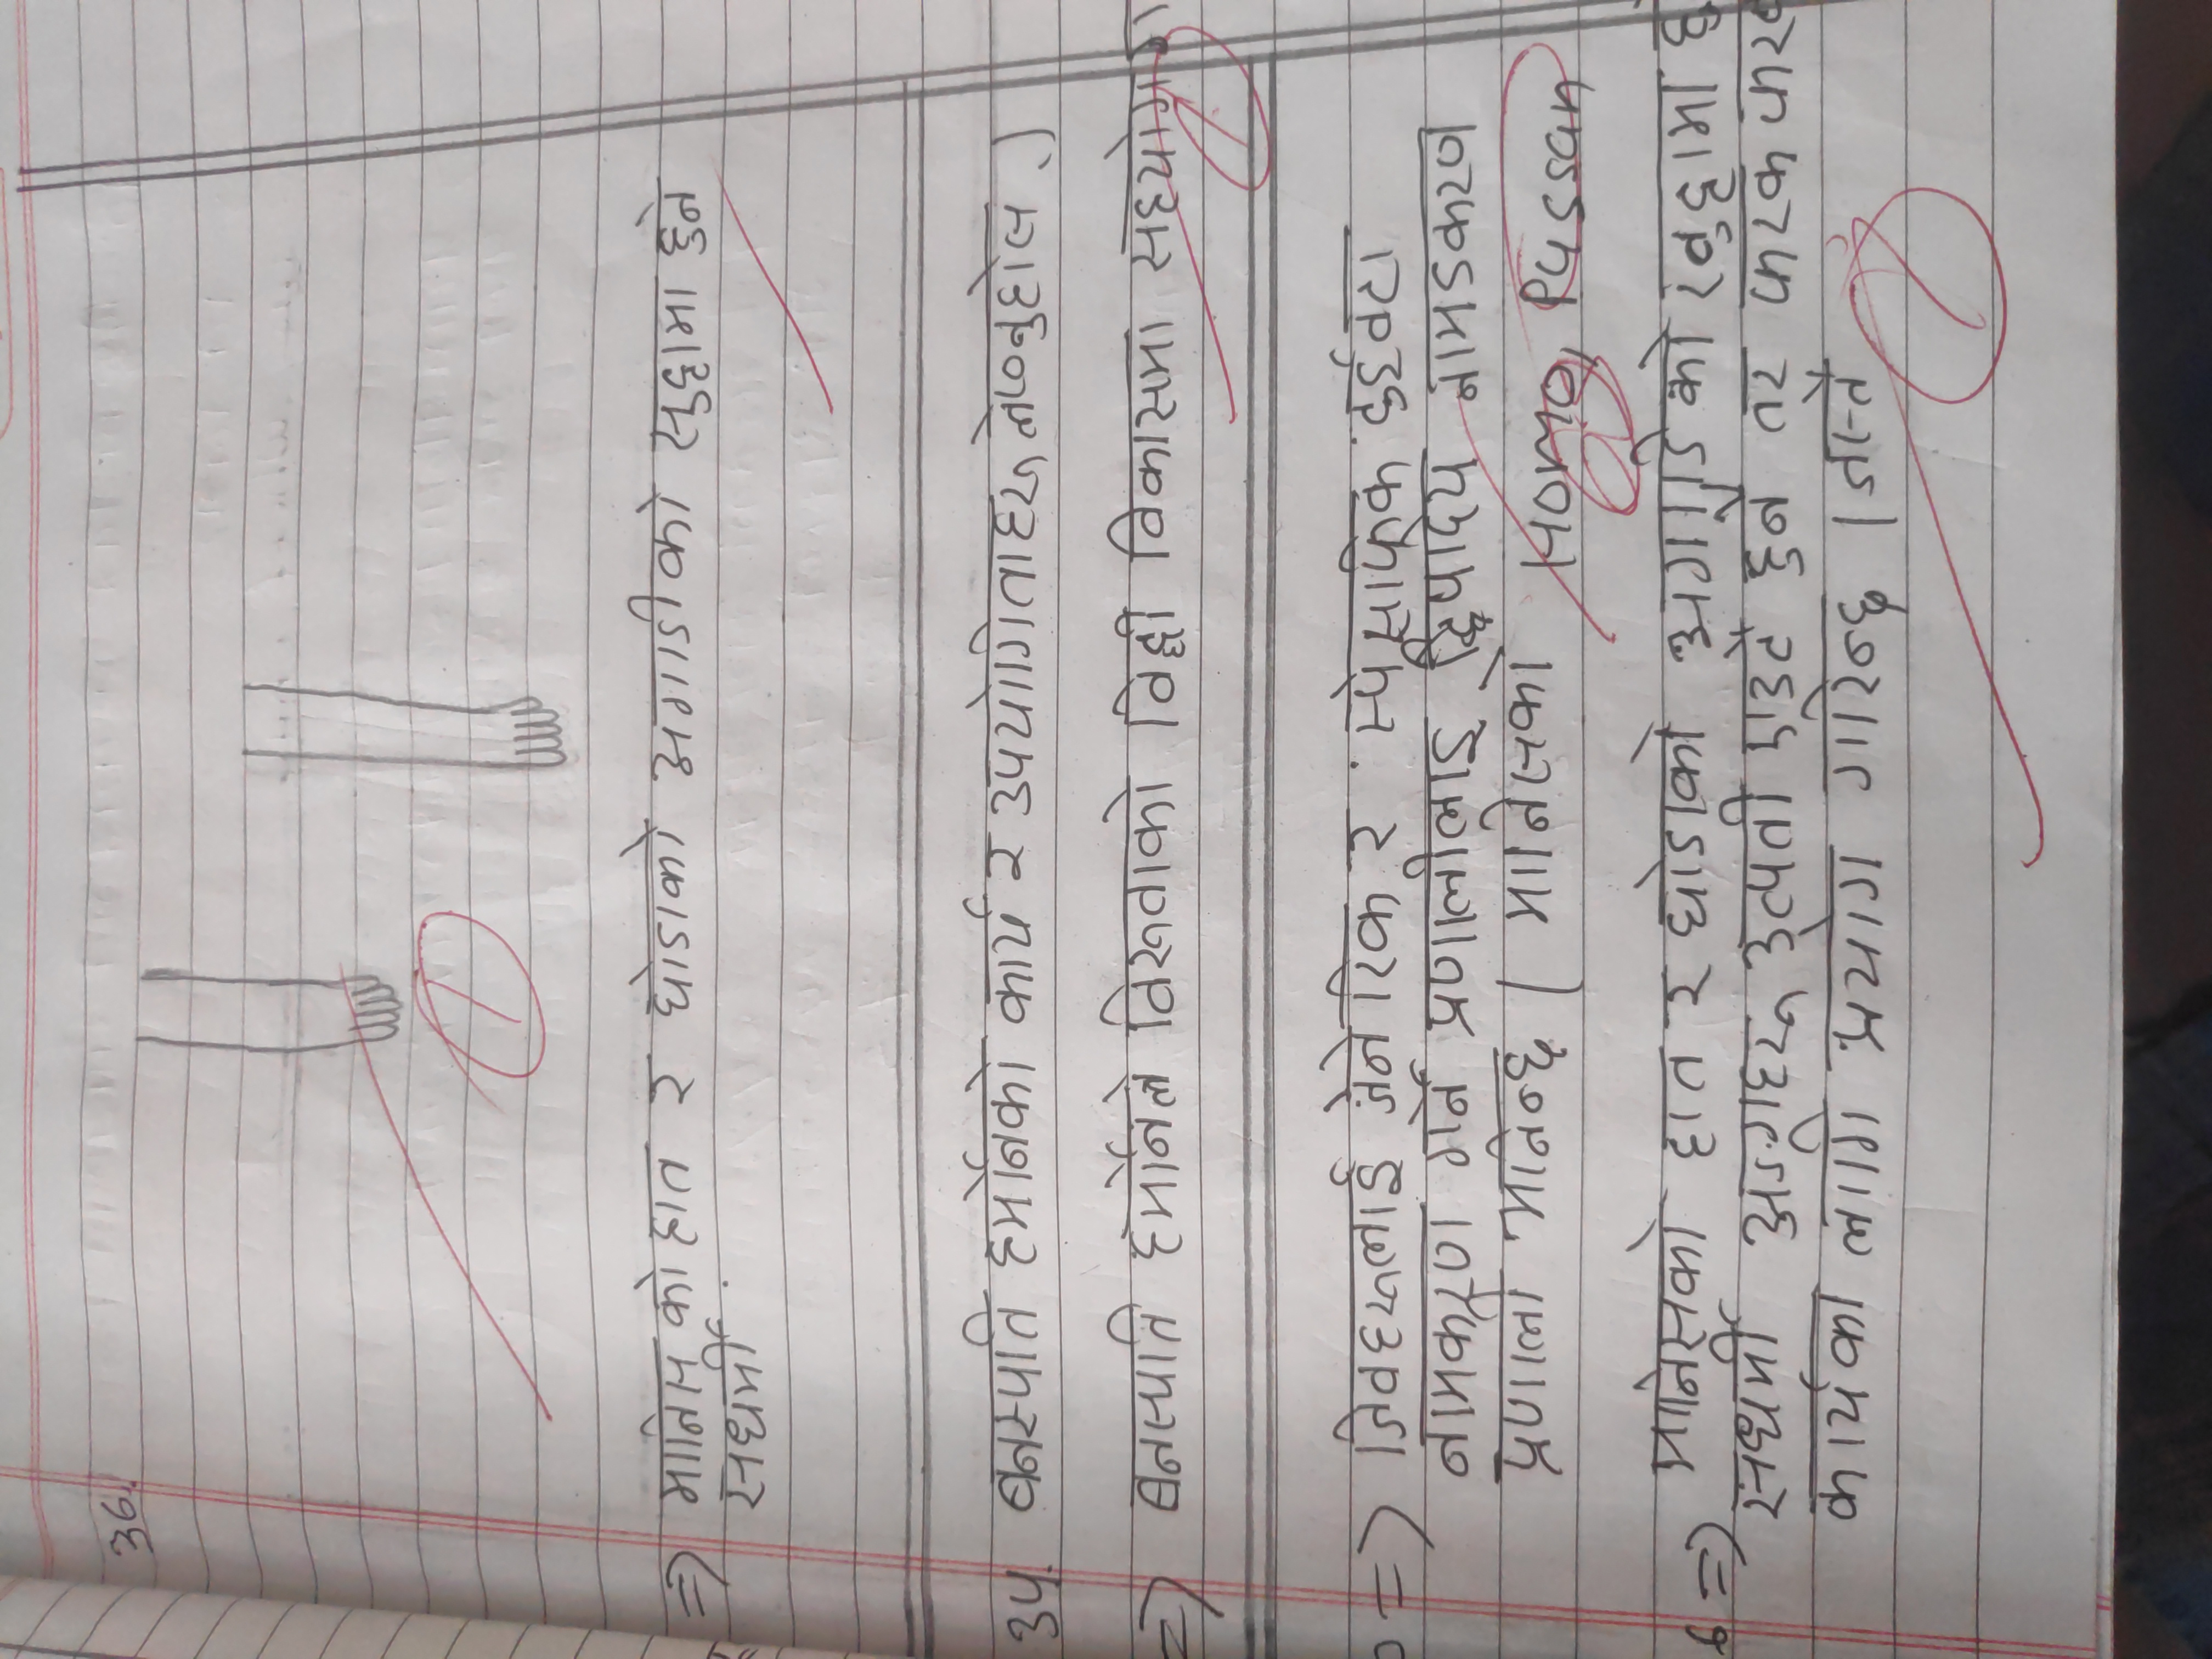 36.
1
=> मानिसको हात र घोडाको अगाडीको खुट्टामा हुने
सधर्मी
1
34. बनस्पति हर्मोनको कार्य र उपयोगिताहरू लेख्नुहोस ।
=> बनस्पति हर्मोनले विरूवाको विद्दी विकासमा सहयोग
1
=> जिवहरूलाई जेनेरिक र स्पेसाफिक दुईवटा
नामकरण गर्ने प्रणालीलाइ द्विपादिय नामडकरण
प्रणाली भनिन्छ । मानिसको Homo, Pussan
6 => मानिसको हात र घोडाको अगाडिको खुट्टामा हु
सधर्मी अङ्गहरू उत्पती एउटै हुने तर फरक फरक
कार्यका लागि प्रयोग गरिन्छ । जस्तै
1